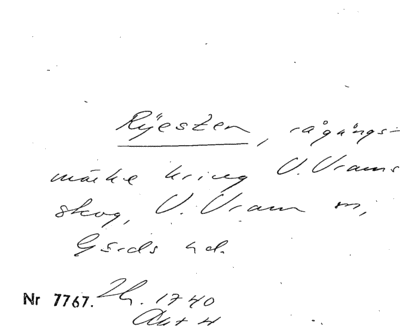 Ryjesten, rågångs-
märke kring V. Vrams
skog, V. Vram sn,
Gärds hd.
Nr 7767. Lh. 1740
Akt 4